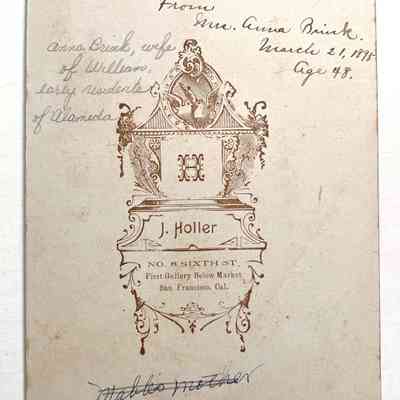 From
Mrs. Anna Brink.
March 21, 1895
Age 48.
Anna Brink, wife
of William,
early residents
of Alameda
H
J. Holler
NO. 8 SIXTH ST.
First Gallery Below Market
San Francisco, Cal.
mother